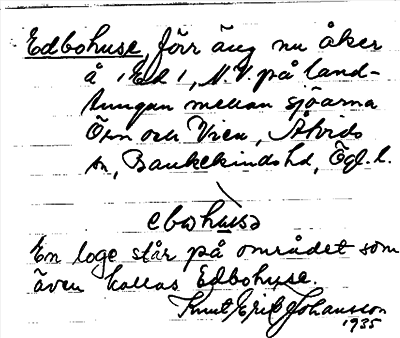 Edbohuse, förr äng nu åker
å Ed, N.V. på land-
tungan mellan sjöarna
Ören och Vren, Åtvids
sn, Bankekinds hd, Ögl. l.
ebohusə
En loge står på området som
även kallas Edbohuse.
Knut Erik Johansson
1935